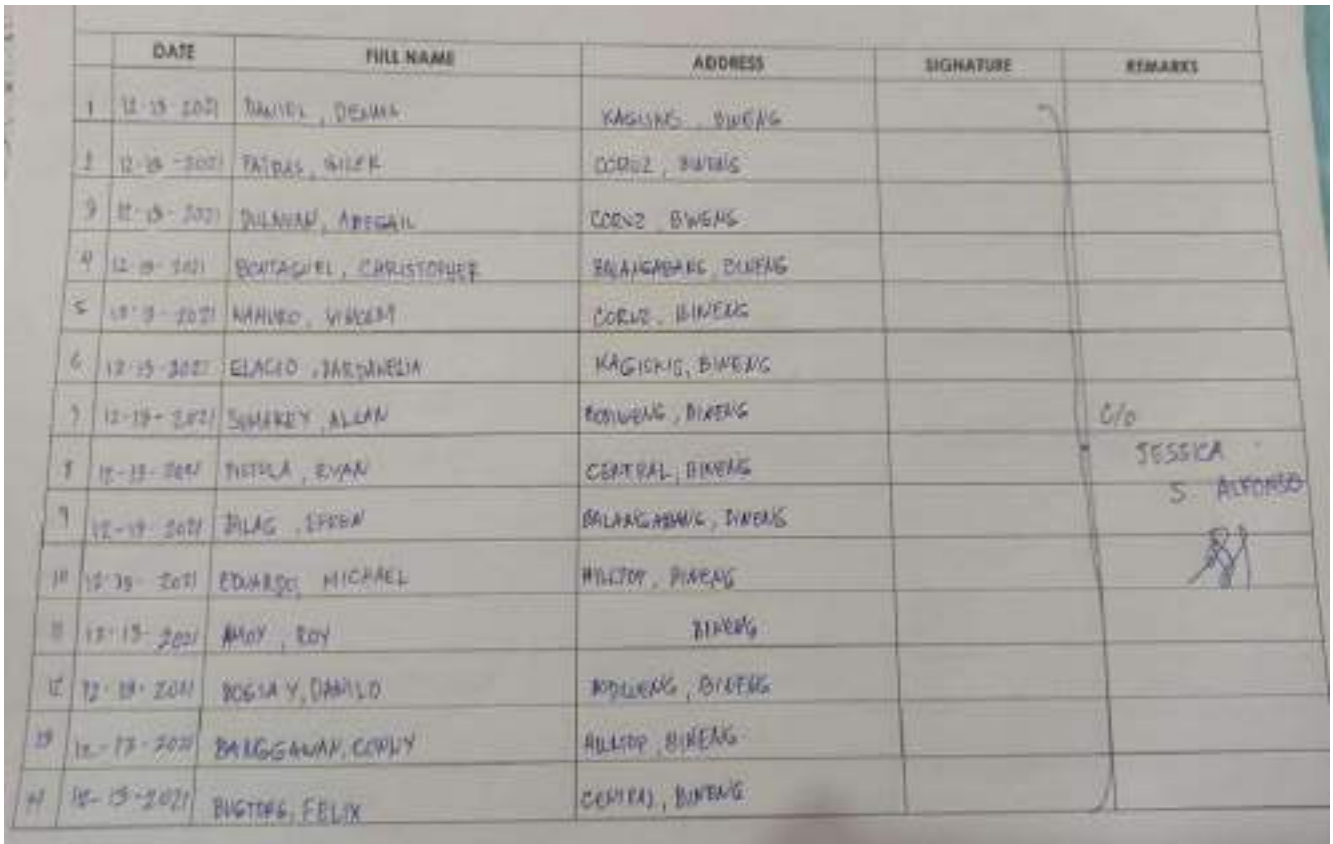 DATE FULL NAME ADDRESS SIGNATURE REMARKS
1 12-13-2021 DANIEL, KAGISKIS, BINENG
2 12-13-2021 CORUZ, BINENG
3 12-13-2021 DULAWAN, ABEGAIL CORUZ BINENG
4 12-13-2021 CHRISTOPHER BALANGABANG, BINENG
5 12-13-2021 VINCENT CORUZ, BINENG
6 12-13-2021 ELACIO, DARDANELIA KAGISKIS, BINENG
7 12-13-2021 ALLAN BODIWENG, BINENG C/o
8 12-13-2021 PISTOLA, RYAN CENTRAL, BINENG JESSICA
S ALFONSO
9 12-13-2021 EFREN BALANGABANG, BINENG
10 12-13-2021 EDUARDO, MICHAEL HILLTOP, BINENG
11 12-13-2021 AMOY, ROY BINENG
12 12-13-2021 DANILO BODIWENG, BINENG
13 12-13-2021 BANGGAWAN, HILLTOP, BINENG
14 12-13-2021 FELIX CENTRAL, BINENG